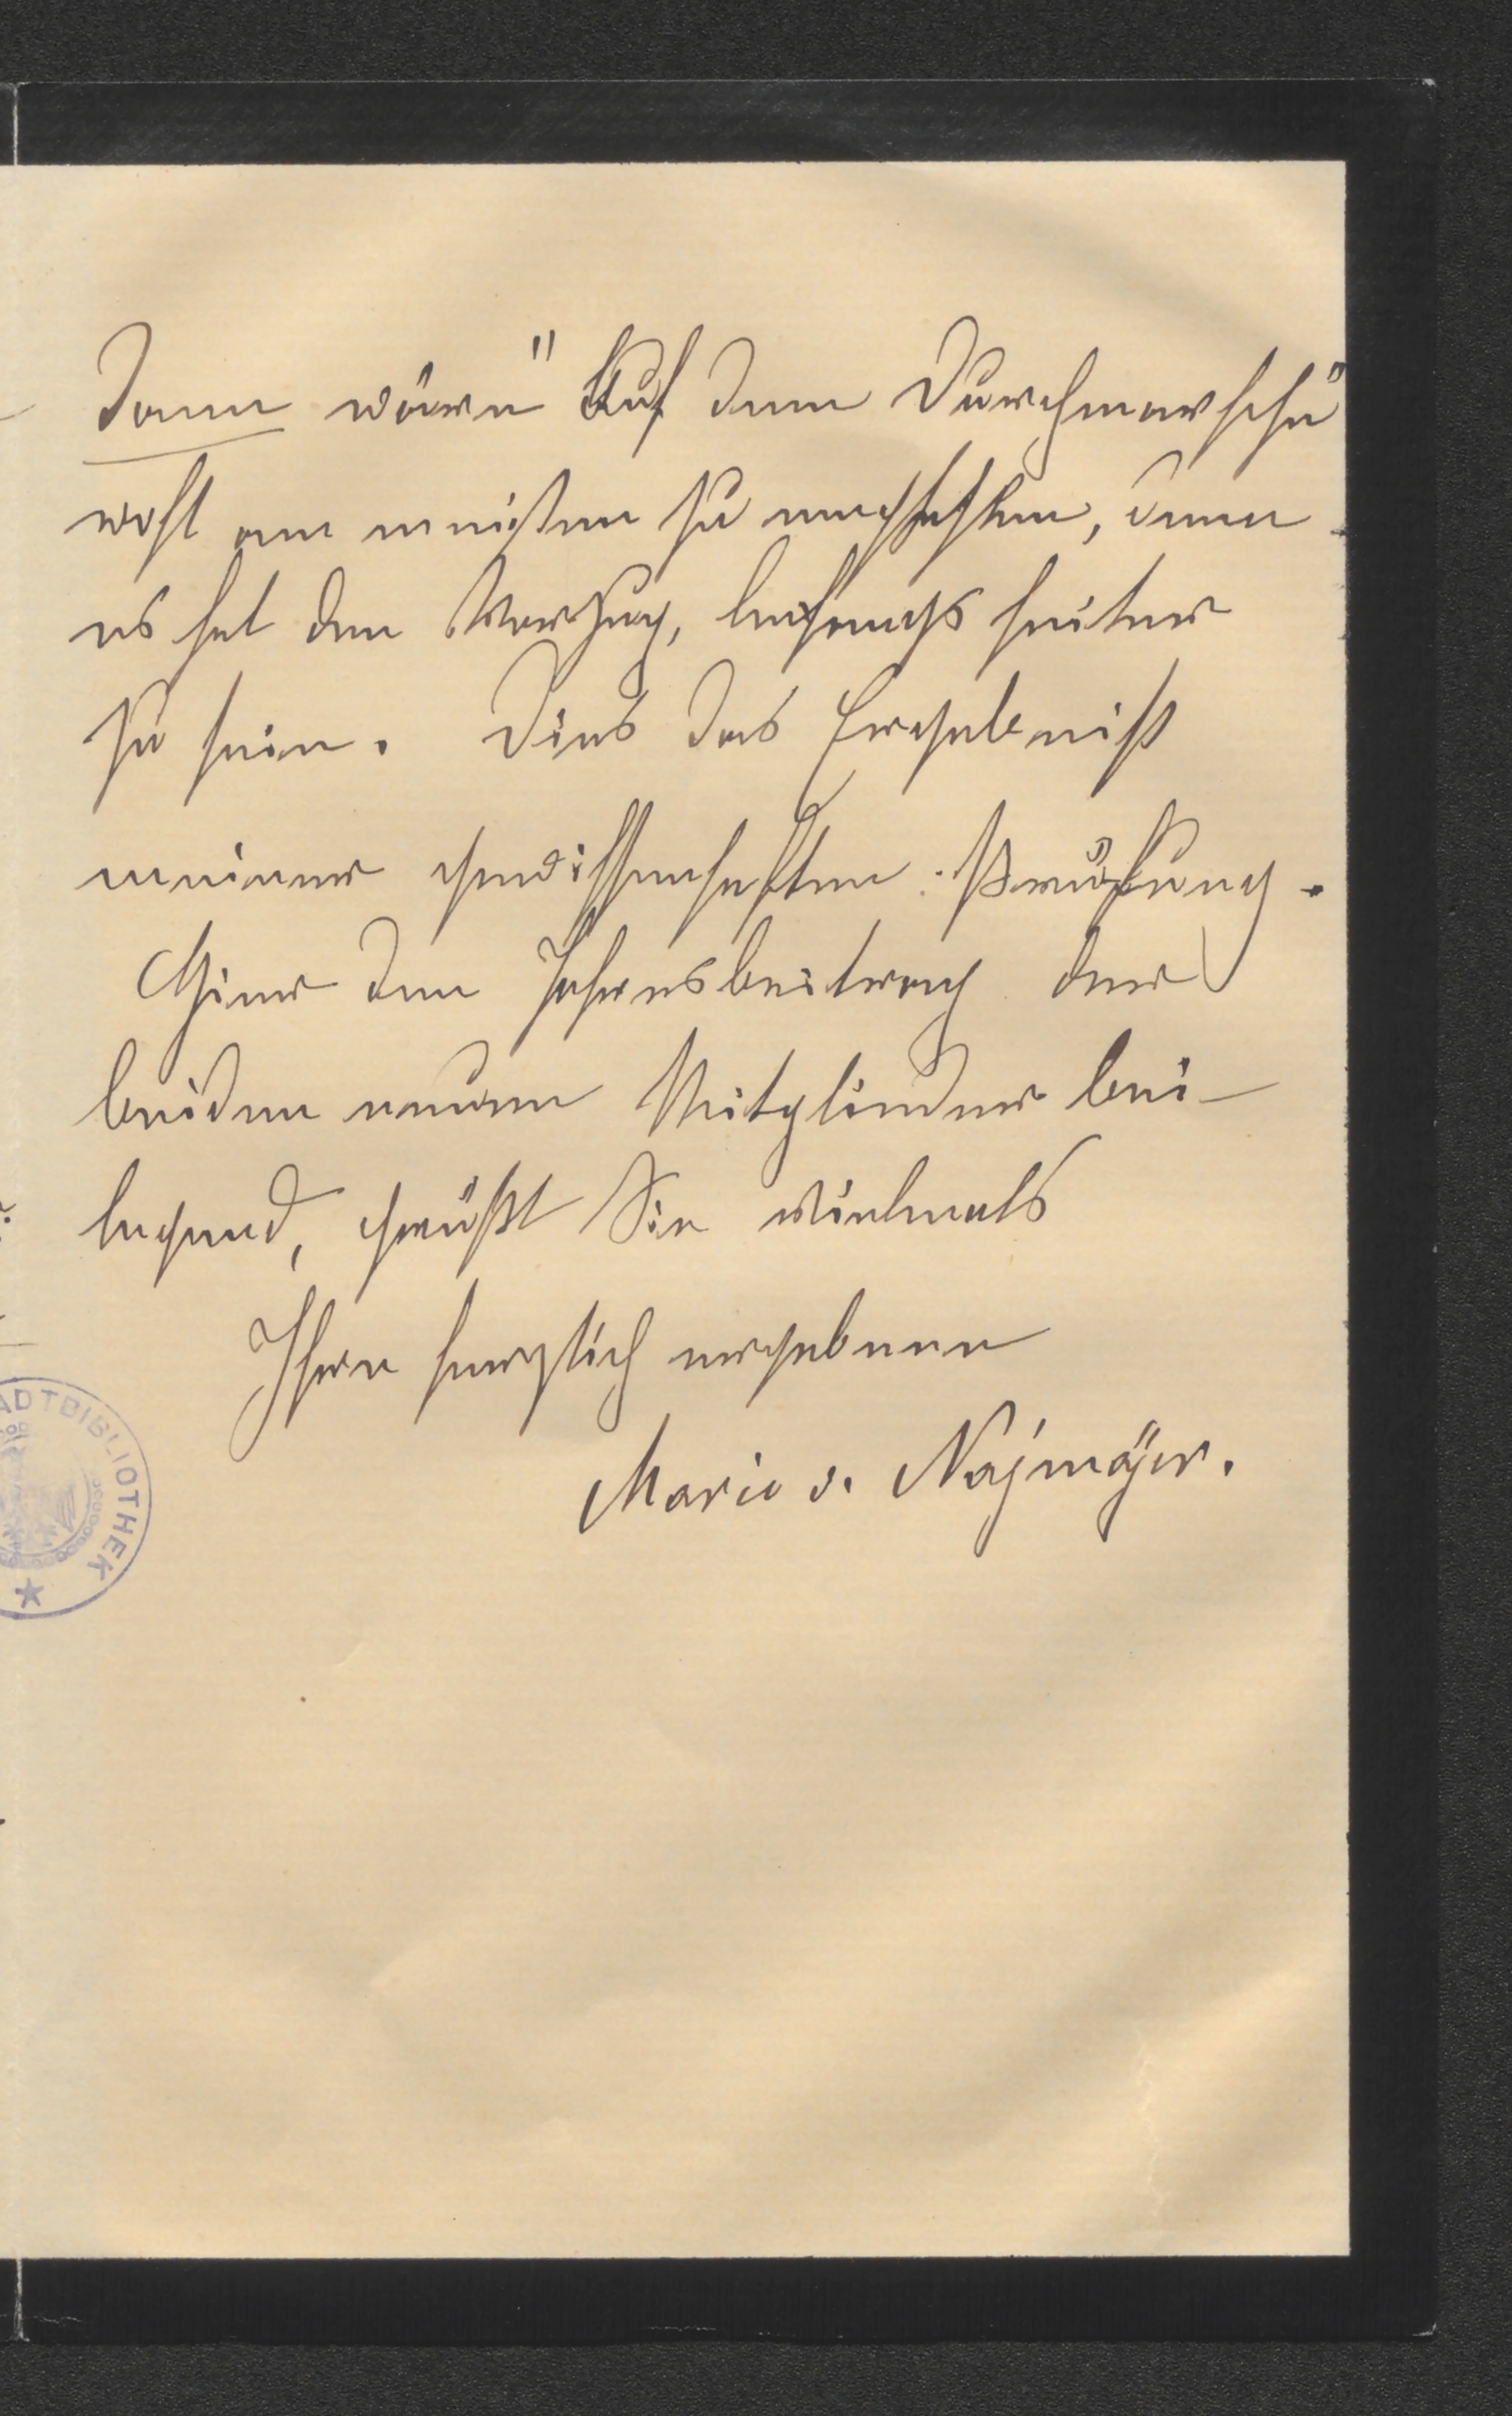 dann wäre "Auf dem Durchmarsche"
wohl am meisten zu empfehlen, denn
es hat den Vorzug, durchwegs heiter
zu sein. Dies das Ergebniß
meiner gewissenhaften Prüfung.
Hier den Jahresbeitrag der
beiden neuen Mitglieder bei-
legend, grüßt Sie vielmals
Ihre herzlich ergebene
Marie v. Najmájer.
ADTBIBLIOTHEK